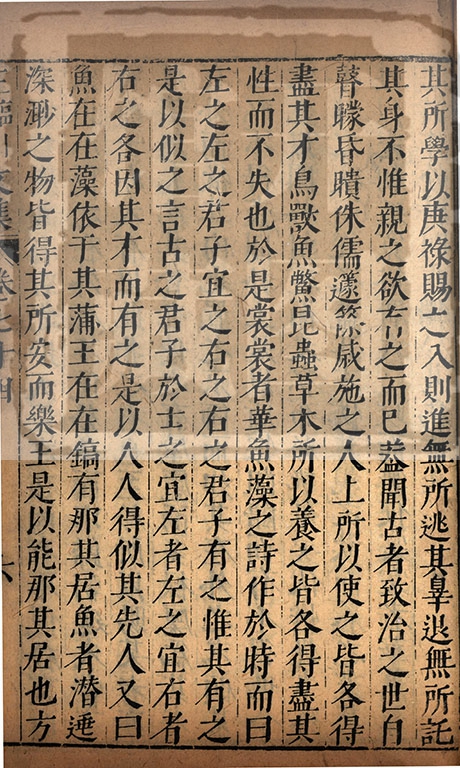 其所學以庚祿賜之入則進無所逃其辠退無所託
其身不惟親之欲有之而已蓋聞古者致治之世自
瞽矇昏聵侏儒蘧蒢戚施之人上所以使之皆各得
盡其才鳥獸魚鱉昆蟲草木所以養之皆各得盡其
性而不失也於是裳裳者華魚藻之詩作於時而曰
左之左之君子宜之右之右之君子有之惟其有之
是以似之言古之君子於士之宜左者左之宜右者
右之各因其才而有之是以人人得似其先人又曰
魚在在藻依于其蒲王在在鎬有那其居魚者潛逃
深渺之物皆得其所安而樂王是以能那其居也方
王臨川文集 卷七十四 六